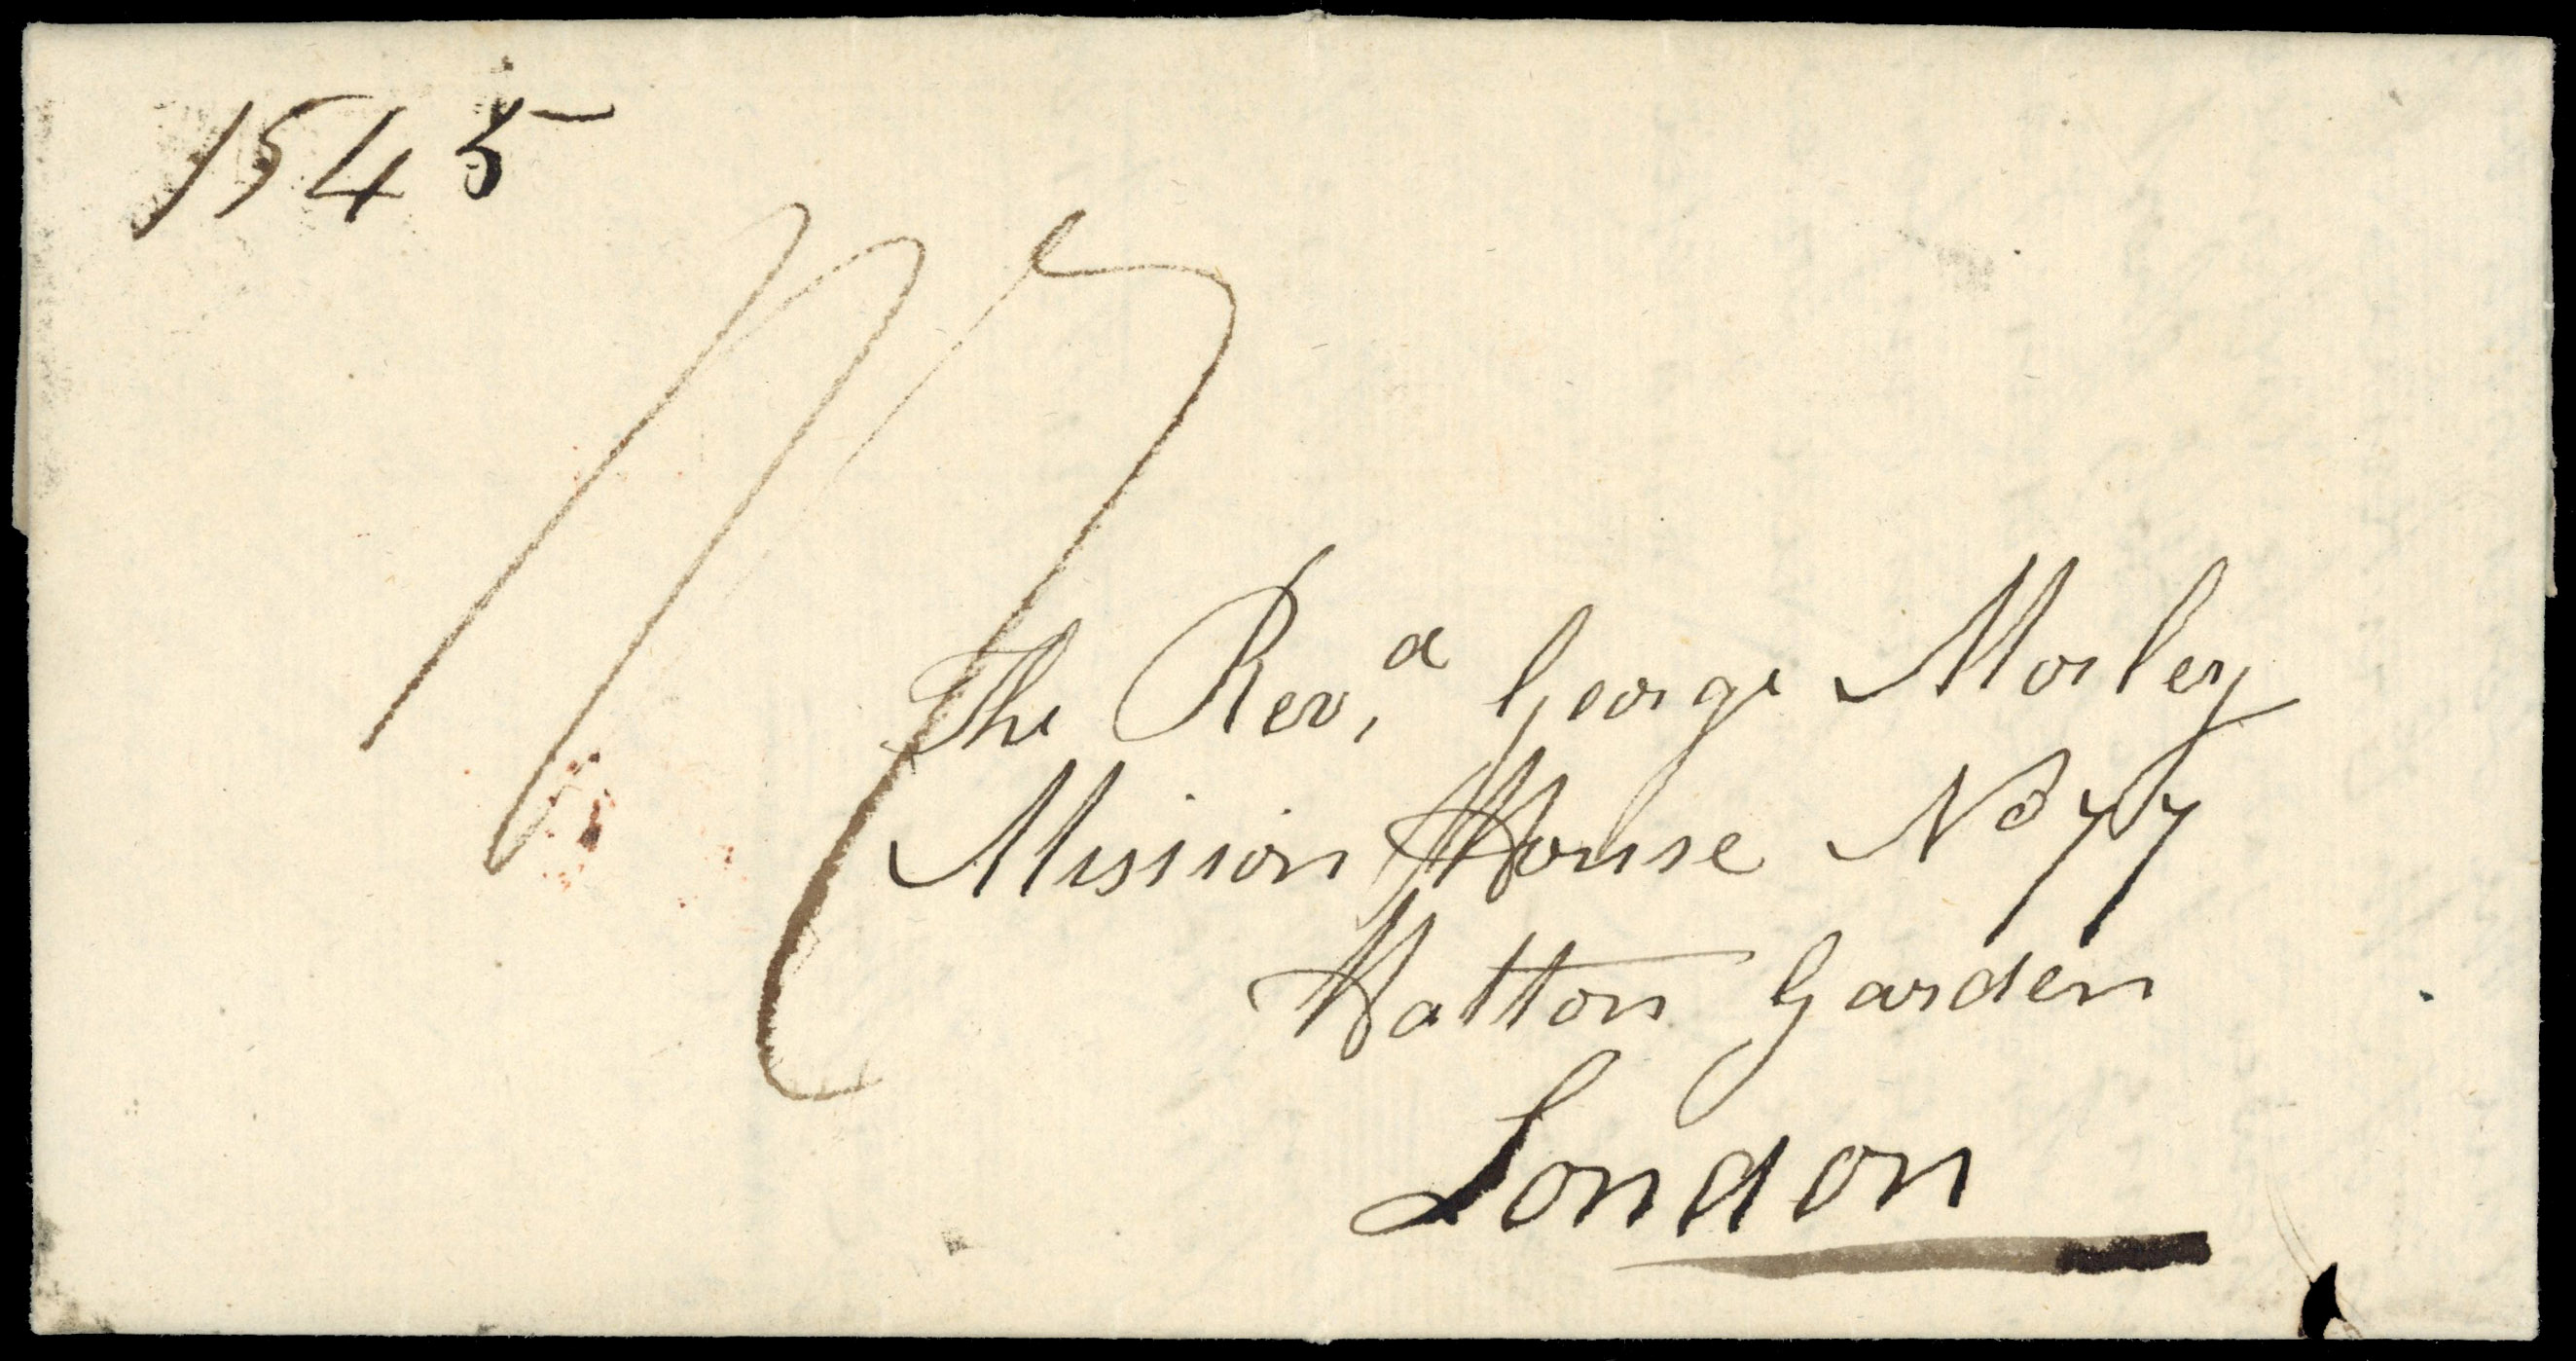 1545
The Rev,d George Morley
Mission House No 77
Hatton Garden
London